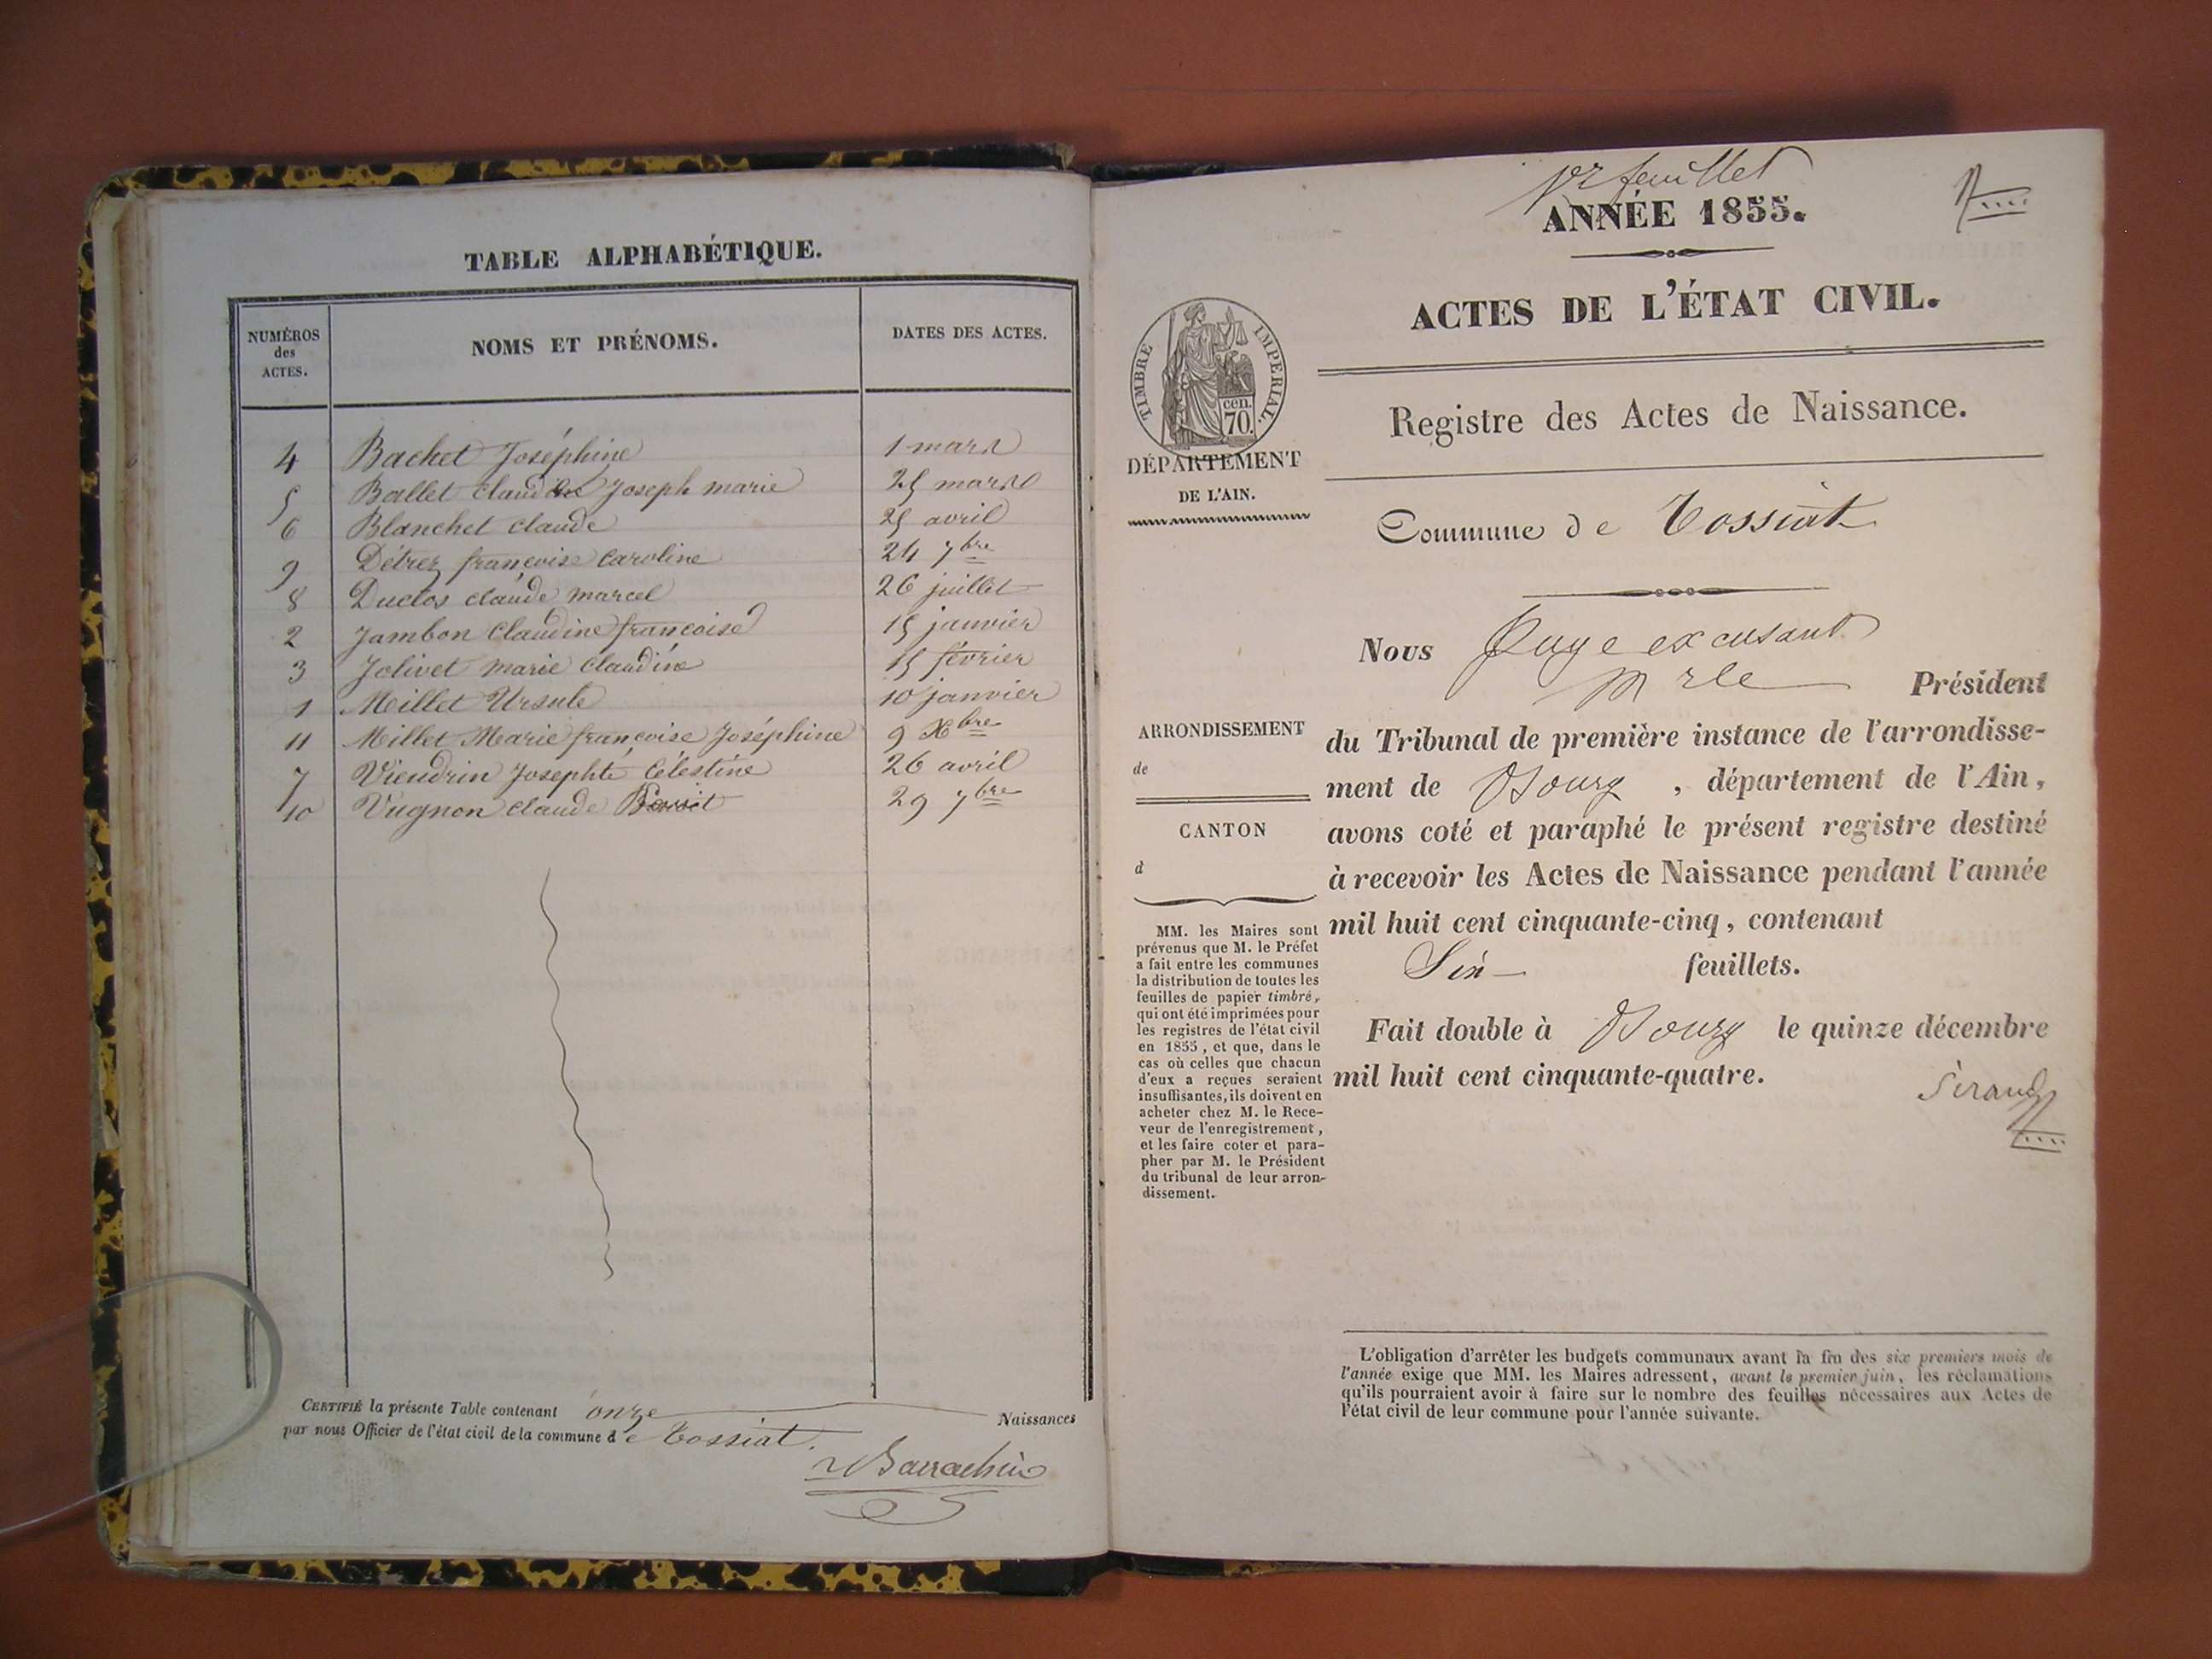 TABLE ALPHABÉTIQUE.
NUMÉROS
des
ACTES.
NOMS ET PRÉNOMS.
DATES DES ACTES.
4 Bachet Joséphine 1 mars
5 Ballet Claude Joseph marie 25 mars
6 Blanchet claude 25 avril
9 Détrez françoise Caroline 24 7bre
8 Duclos claude marcel 26 juillet
2 Jambon Claudine françoise 15 janvier
3 Jolivet marie Claudine 15 février
1 Millet Ursule 10 janvier
11 Millet Marie françoise Joséphine 9 Xbre
7 Vieudrin Josephte Célestine 26 avril
10 Vugnon claude Benoit 29 7bre
CERTIFIÉ la présente Table contenant onze Naissances
par nous Officier de l'état civil de la commune de Tossiat.
Barrachin
1er feuillet
ANNÉE 1855.
ACTES DE L'ÉTAT CIVIL.
TIMBRE IMPERIAL
cen.
70.
Registre des Actes de Naissance.
DÉPARTEMENT
DE L'AIN.
Commune de Tossiat
Nous Juge excusant
Mr le Président
ARRONDISSEMENT
de
du Tribunal de première instance de l'arrondisse-
ment de Bourg, département de l'Ain,
CANTON
d
avons coté et paraphé le présent registre destiné
à recevoir les Actes de Naissance pendant l'année
mil huit cent cinquante-cinq, contenant
Six feuillets.
Fait double à Bourg le quinze décembre
mil huit cent cinquante-quatre.
Sirand
MM. les Maires sont
prévenus que M. le Préfet
a fait entre les communes
la distribution de toutes les
feuilles de papier timbré,
qui ont été imprimées pour
les registres de l'état civil
en 1855, et que, dans le
cas où celles que chacun
d'eux a reçues seraient
insuffisantes, ils doivent en
acheter chez M. le Rece-
veur de l'enregistrement,
et les faire coter et para-
pher par M. le Président
du tribunal de leur arron-
dissement.
L'obligation d'arrêter les budgets communaux avant la fin des six premiers mois de
l'année exige que MM. les Maires adressent, avant le premier juin, les réclamations
qu'ils pourraient avoir à faire sur le nombre des feuilles nécessaires aux Actes de
l'état civil de leur commune pour l'année suivante.